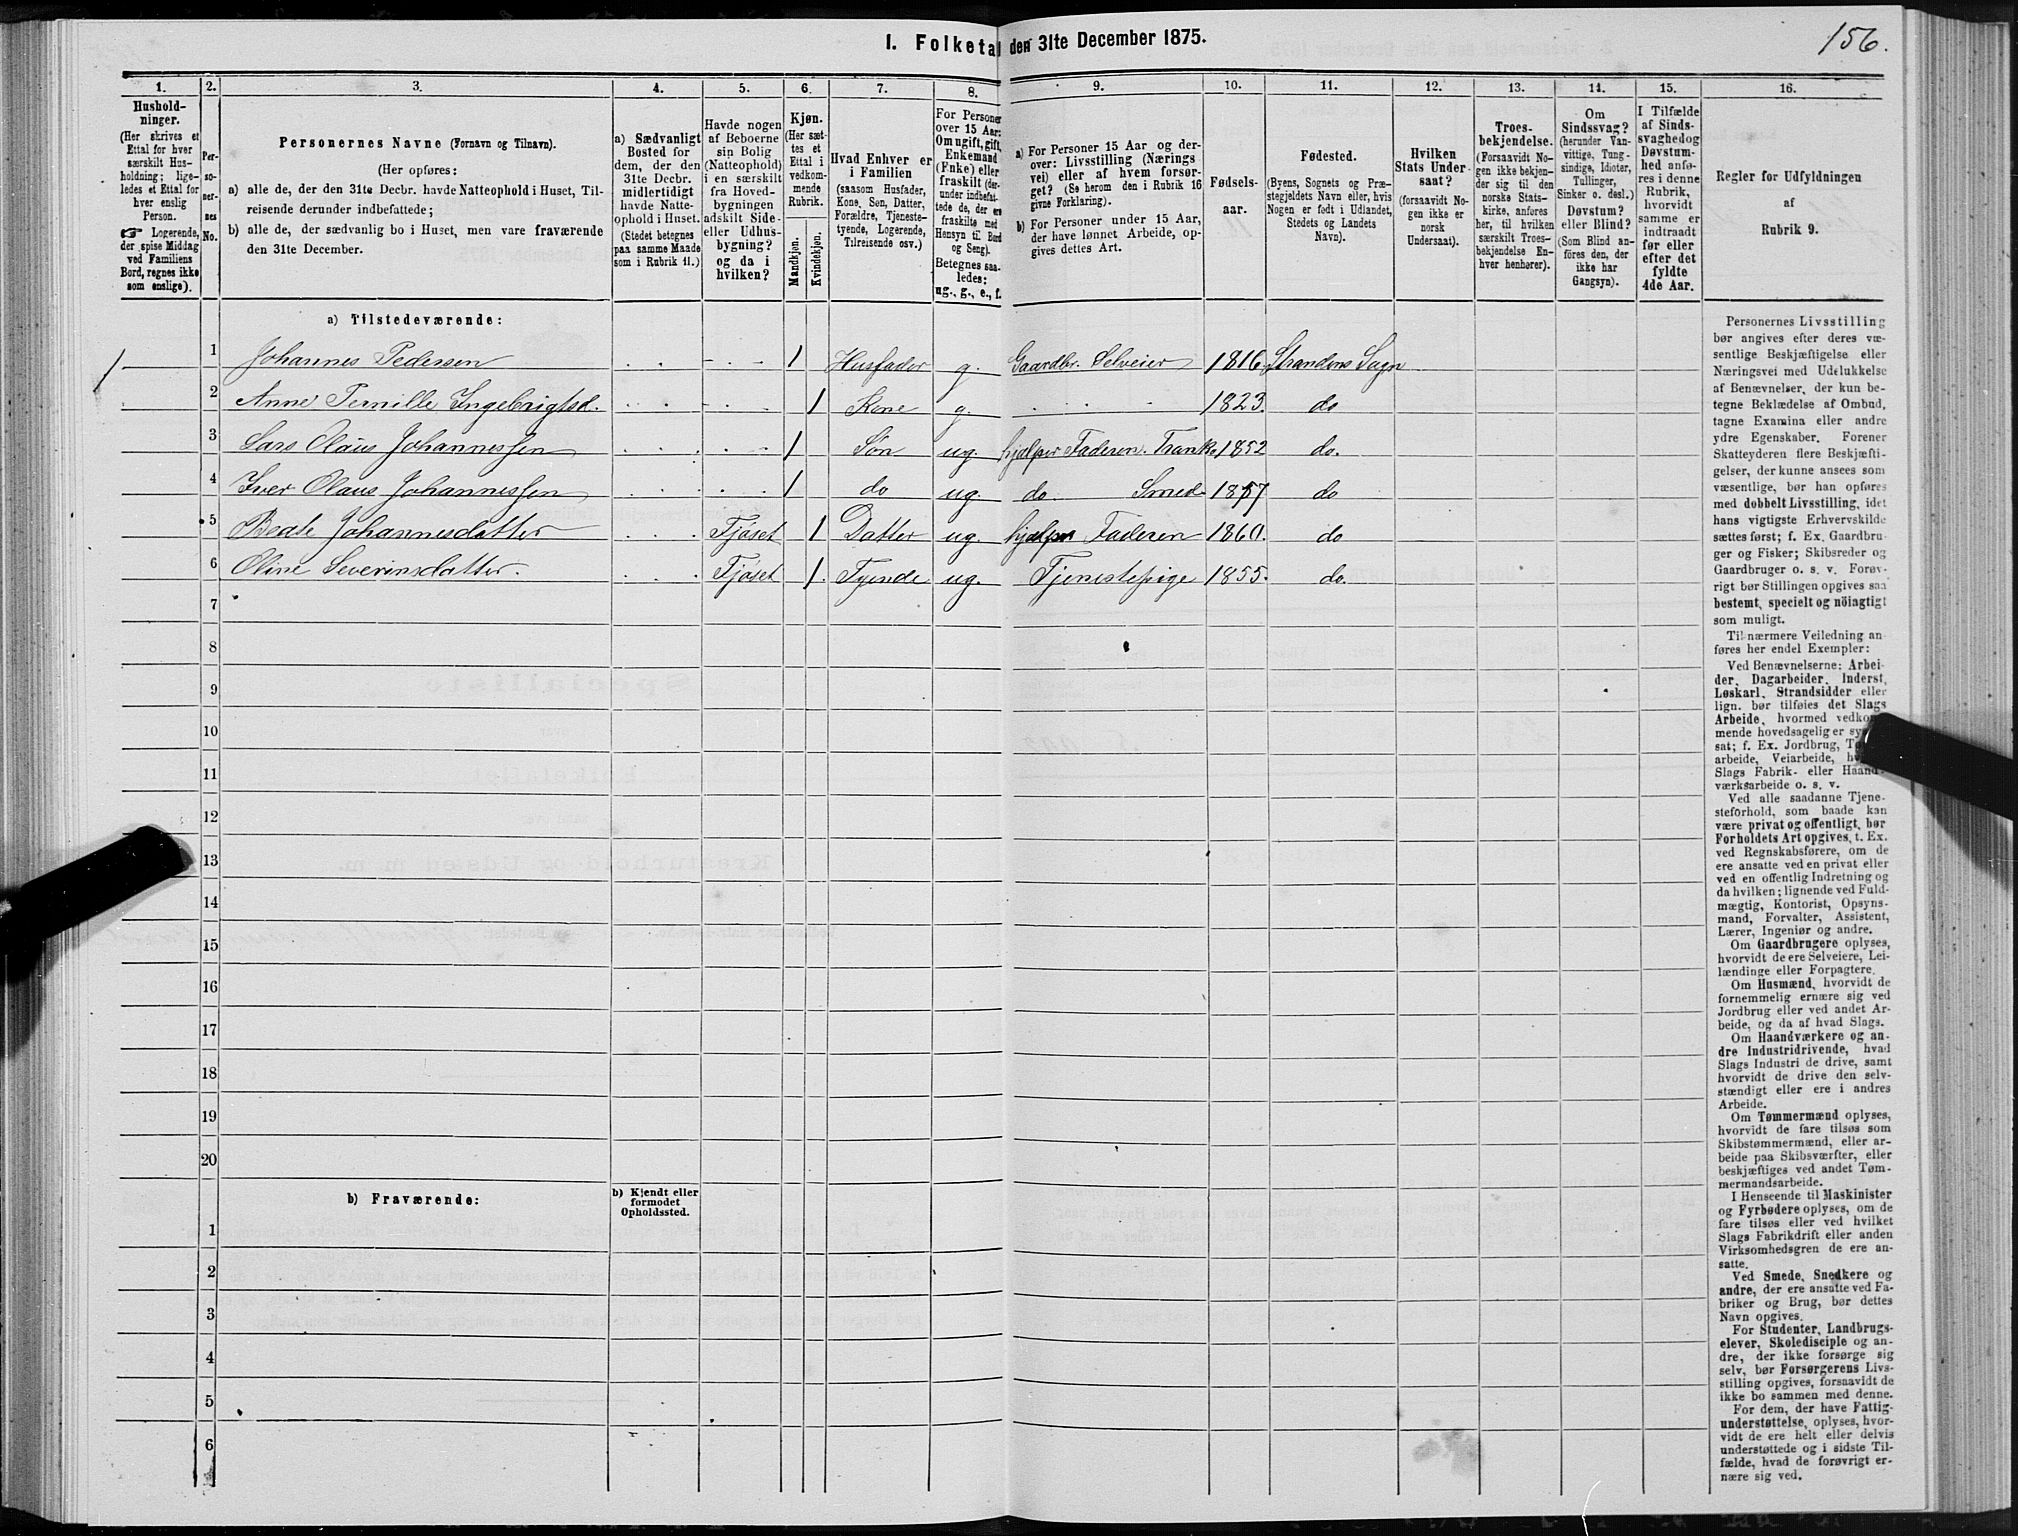 156.
I. Folketal den 31te December 1875.
1.
Hushold-
ninger.
(Her skrives et
Ettal for hver
særskilt Hus-
holdning; lige-
ledes et Ettal for
hver enslig
Person.
☞ Logerende,
der spise Middag
ved Familiens
Bord, regnes ikke
som enslige).
2.
Per-
so-
ner-
nes
No.
3.
Personernes Navne (Fornavn og Tilnavn).
(Her opføres:
a) alle de, der den 31te Decbr. havde Natteophold i Huset, Til-
reisende derunder indbefattede;
b) alle de, der sædvanlig bo i Huset, men vare fraværende
den 31te December.
4.
a) Sædvanligt
Bosted for
dem, der den
31te Decbr.
midlertidigt
havde Natte-
ophold i Huset.
(Stedet betegnes
paa samme Maade
som i Rubrik 11.)
5.
Havde nogen
af Beboerne
sin Bolig
(Natteophold)
i en særskilt
fra Hoved-
bygningen
adskilt Side-
eller Udhus-
bygning?
og da i
hvilken?
6.
Kjøn.
(Her sæt-
tes et
Ettal i
vedkom-
mende
Rubrik.
Mandkjøn.
Kvindekjøn.
7.
Hvad Enhver er
i Familien
(saasom Husfader,
Kone, Søn, Datter,
Forældre, Tjeneste-
tyende, Logerende,
Tilreisende osv.)
8.
For Personer
over 15 Aar:
Om ugift, gift,
Enkemand
(Enke) eller
fraskilt (der-
under indbefat-
tede de, der ere
fraskilte med
Hensyn til Bord
og Seng).
Betegnes saa-
ledes:
ug., g., e., f.
9.
a) For Personer 15 Aar og der-
over: Livsstilling (Nærings-
vei) eller af hvem forsør-
get? (Se herom den i Rubrik 16
givne Forklaring).
b) For Personer under 15 Aar,
der have lønnet Arbeide, op-
gives dettes Art.
10.
Fødsels-
aar.
11.
Fødested.
(Byens, Sognets og Præ-
stegjeldets Navn eller, hvis
Nogen er født i Udlandet,
Stedets og Landets
Navn).
12.
Hvilken
Stats Under-
saat?
(forsaavidt No-
gen ikke er
norsk
Undersaat).
13.
Troes-
bekjendelse.
(Forsaavidt No-
gen ikke bekjen-
der sig til den
norske Stats-
kirke, anføres
her, til hvilken
særskilt Troes-
bekjendelse En-
hver henhører).
14.
Om
Sindssvag?
(herunder Van-
vittige, Tung-
sindige, Idioter,
Tullinger,
Sinker o. desl.)
Døvstum?
eller Blind?
(Som Blind an-
føres den, der
ikke har
Gangsyn).
15.
I Tilfælde
af Sinds-
svaghed og
Døvstum-
hed anfø-
res i denne
Rubrik,
hvorvidt
samme er
indtraadt
før eller
efter det
fyldte
4de Aar.
16.
Regler for Udfyldningen
af
Rubrik 9.
a) Tilstedeværende:
1 1 Johannes Pedersen 1 Husfader g. Gaardbr. Selveier 1816. Strandens Sogn
2 Anne Pernille Ingebrigtsd. 1 Kone g. 1823. do
3 Lars Olaus Johannessen 1 Søn ug. hjælper Faderen. Trankr 1852 do.
4 Iver Olaus Johannessen 1 do ug. do. Smed 1857 do
5 Beate Johannesdatter Fjøset 1 Datter ug. hjælper Faderen 1860. do
6 Oline Severinsdatter. Fjøset 1. Tyende ug. Tjenestepige 1855. do.
7
8
9
10
11
12
13
14
15
16
17
18
19
20
b) Fraværende:
b) Kjendt eller
formodet
Opholdssted.
1
2
3
4
5
6
Personernes Livsstilling
bør angives efter deres væ-
sentlige Beskjæftigelse eller
Næringsvei med Udelukkelse
af Benævnelser, der kun be-
tegne Beklædelse af Ombud,
tagne Examina eller andre
ydre Egenskaber. Forener
Skatteyderen flere Beskjæfti-
gelser, der kunne ansees som
væsentlige, bør han opføres
med dobbelt Livsstilling, idet
hans vigtigste Erhvervskilde
sættes først; f. Ex. Gaardbru-
ger og Fisker; Skibsreder og
Gaardbruger o. s. v. Forøv-
rigt bør Stillingen opgives saa
bestemt, specielt og nöiagtigt
som muligt.
Til nærmere Veiledning an-
føres her endel Exempler:
Ved Benævnelserne: Arbei-
der, Dagarbeider, Inderst,
Løskarl, Strandsidder eller
lign. bør tilføies det Slags
Arbeide, hvormed vedkom-
mende hovedsagelig er sy
sat; f. Ex. Jordbrug, T
arbeide, Veiarbeide, h
Slags Fabrik- eller Haand-
værksarbeide o. s. v.
Ved alle saadanne Tjene-
steforhold, som baade kan
være privat og offentligt, bør
Forholdets Art opgives, t. Ex.
ved Regnskabsførere, om de
ere ansatte ved en privat eller
ved en offentlig Indretning og
da hvilken; lignende ved Fuld-
mægtig, Kontorist, Opsyns-
mand, Forvalter, Assistent,
Lærer, Ingeniør og andre.
Om Gaardbrugere oplyses,
hvorvidt de ere Selveiere, Lei-
lændinge eller Forpagtere.
Om Husmænd, hvorvidt de
fornemmelig ernære sig ved
Jordbrug eller ved andet Ar-
beide, og da af hvad Slags.
Om Haandværkere og an-
dre Industridrivende, hvad
Slags Industri de drive, samt
hvorvidt de drive den selv-
stændigt eller ere i andres
Arbeide.
Om Tømmermænd oplyses,
hvorvidt de fare tilsøs som
Skibstømmermænd, eller ar-
beide paa Skibsværfter, eller
beskjæftiges ved andet Tøm-
mermandsarbeide.
I Henseende til Maskinister
og Fyrbødere oplyses, om de
fare tilsøs eller ved hvilket
Slags Fabrikdrift eller anden
Virksomhedsgren de ere an-
satte.
Ved Smede, Snedkere og
andre, der ere ansatte ved Fa-
briker og Brug, bør dettes
Navn opgives.
For Studenter, Landbrugs-
elever, Skoledisciple og an-
dre, der ikke forsørge sig
selv, bør Forsørgerens Livs-
stilling opgives, forsaavidt de
ikke bo sammen med denne.
For dem, der have Fattig-
understøttelse, oplyses, hvor-
vidt de ere helt eller delvis
understøttede og i sidste Til-
fælde, hvad de forøvrigt er-
nære sig ved.